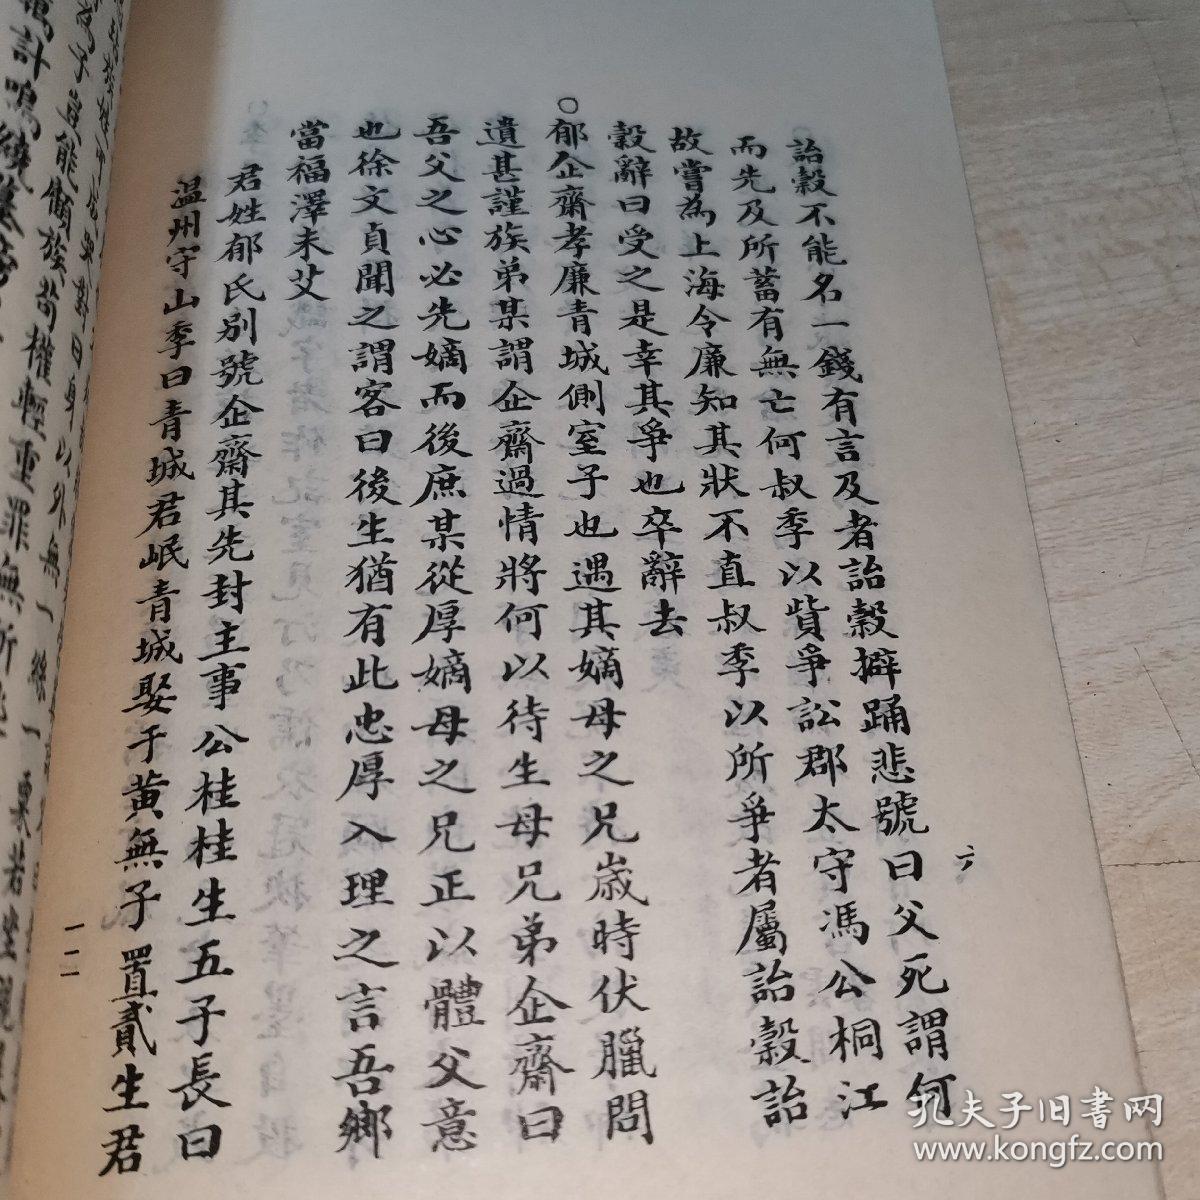 詒穀不能名一錢有言及者詒穀擗踊悲號曰父死謂何
而先及所蓄有無亡何叔季以貲爭訟郡太守馮公桐江
故嘗為上海令廉知其狀不直叔季以所爭者屬詒穀詒
穀辭曰受之是幸其爭也卒辭去
○郁企齋孝廉青城側室子也遇其嫡母之兄歲時伏臘問
遺甚謹族弟某謂企齋過情將何以待生母兄弟企齋曰
吾父之心必先嫡而後庶某從厚嫡母之兄正以體父意
也徐文貞聞之謂客曰後生猶有此忠厚入理之言吾鄉
當福澤未艾
君姓郁氏別號企齋其先封主事公桂桂生五子長曰
温州守山季曰青城君岷青城娶于黄無子置貳生君
六
一一一
孔夫子旧書网
www.kongfz.com